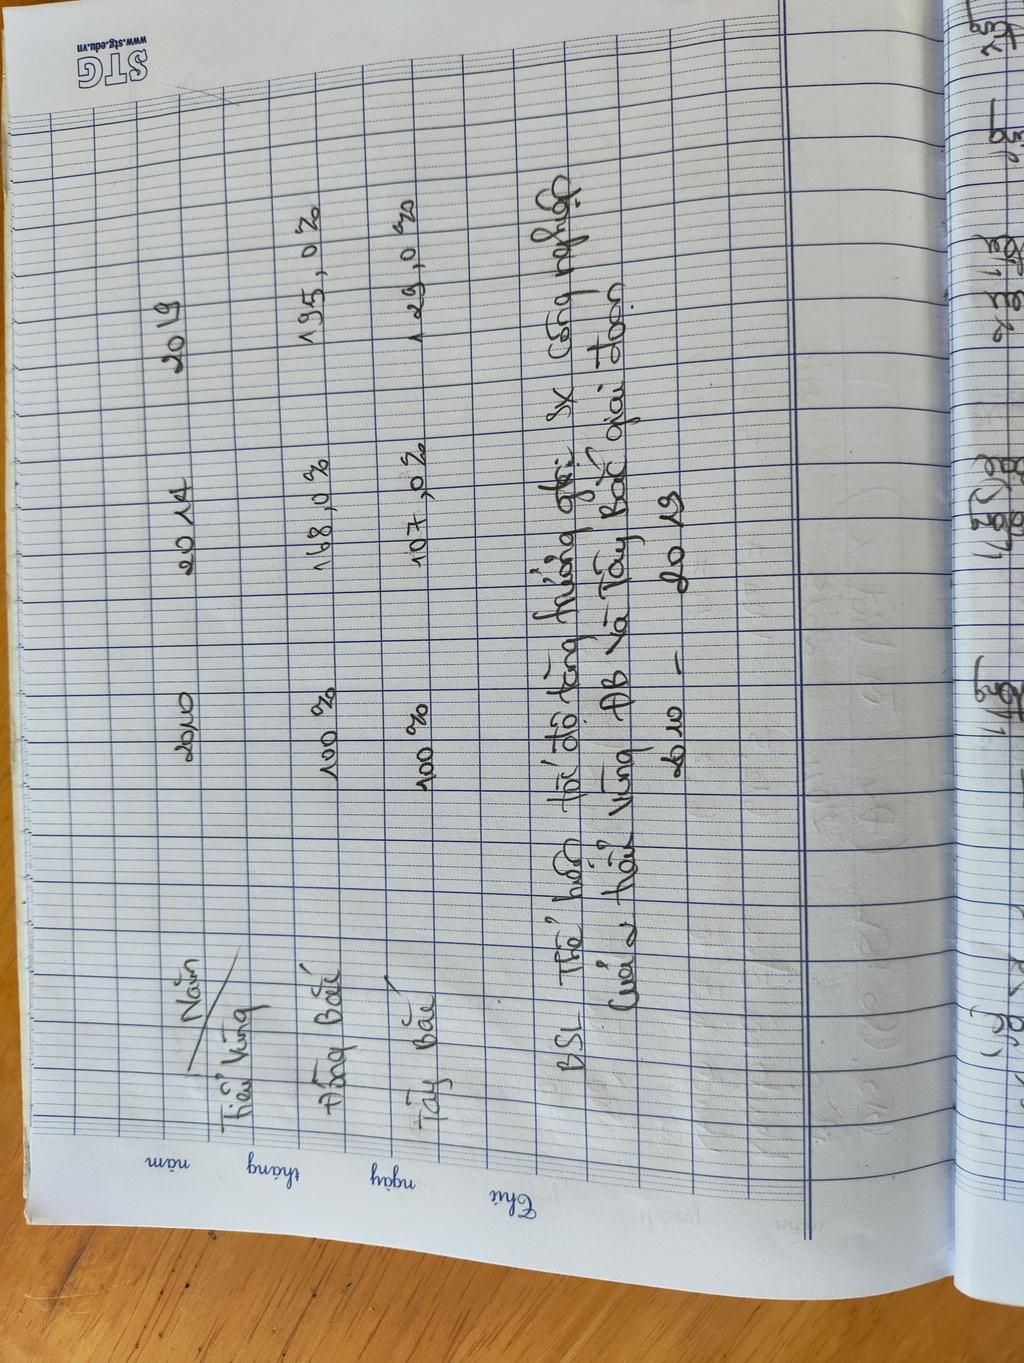 Năm 2010 2014 2019
Tiểu Vùng
Đông Bắc 100% 168,0% 195,0%
Tây Bắc 100% 107,0% 129,0%
BSL Thể hiện tốc độ tăng trưởng giá trị SX công nghiệp
của 2 tiểu vùng ĐB và Tây Bắc giai đoạn
2010 - 2019
Thứ
ngày
tháng
năm
STG
www.stg.edu.vn